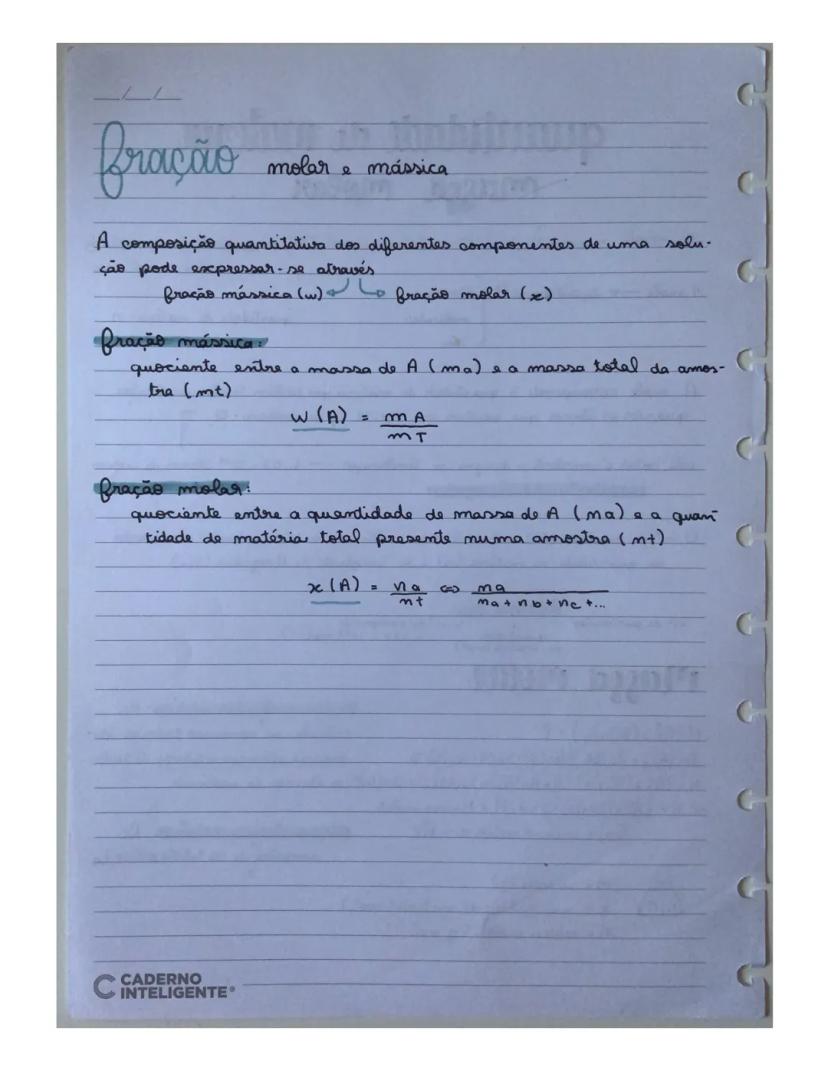 __/__/__
fração molar e mássica
A composição quantitativa dos diferentes componentes de uma solu-
ção pode expressar-se através
fração mássica (w) fração molar (x)
fração mássica:
quociente entre a massa de A (ma) e a massa total da amos-
tra (mt)
W (A) = mA / mT
fração molar:
quociente entre a quantidade de massa de A (ma) e a quan
tidade de matéria total presente numa amostra (nt)
x (A) = na / nt ⇔ na / na + nb + nc + ...
CADERNO
INTELIGENTE®